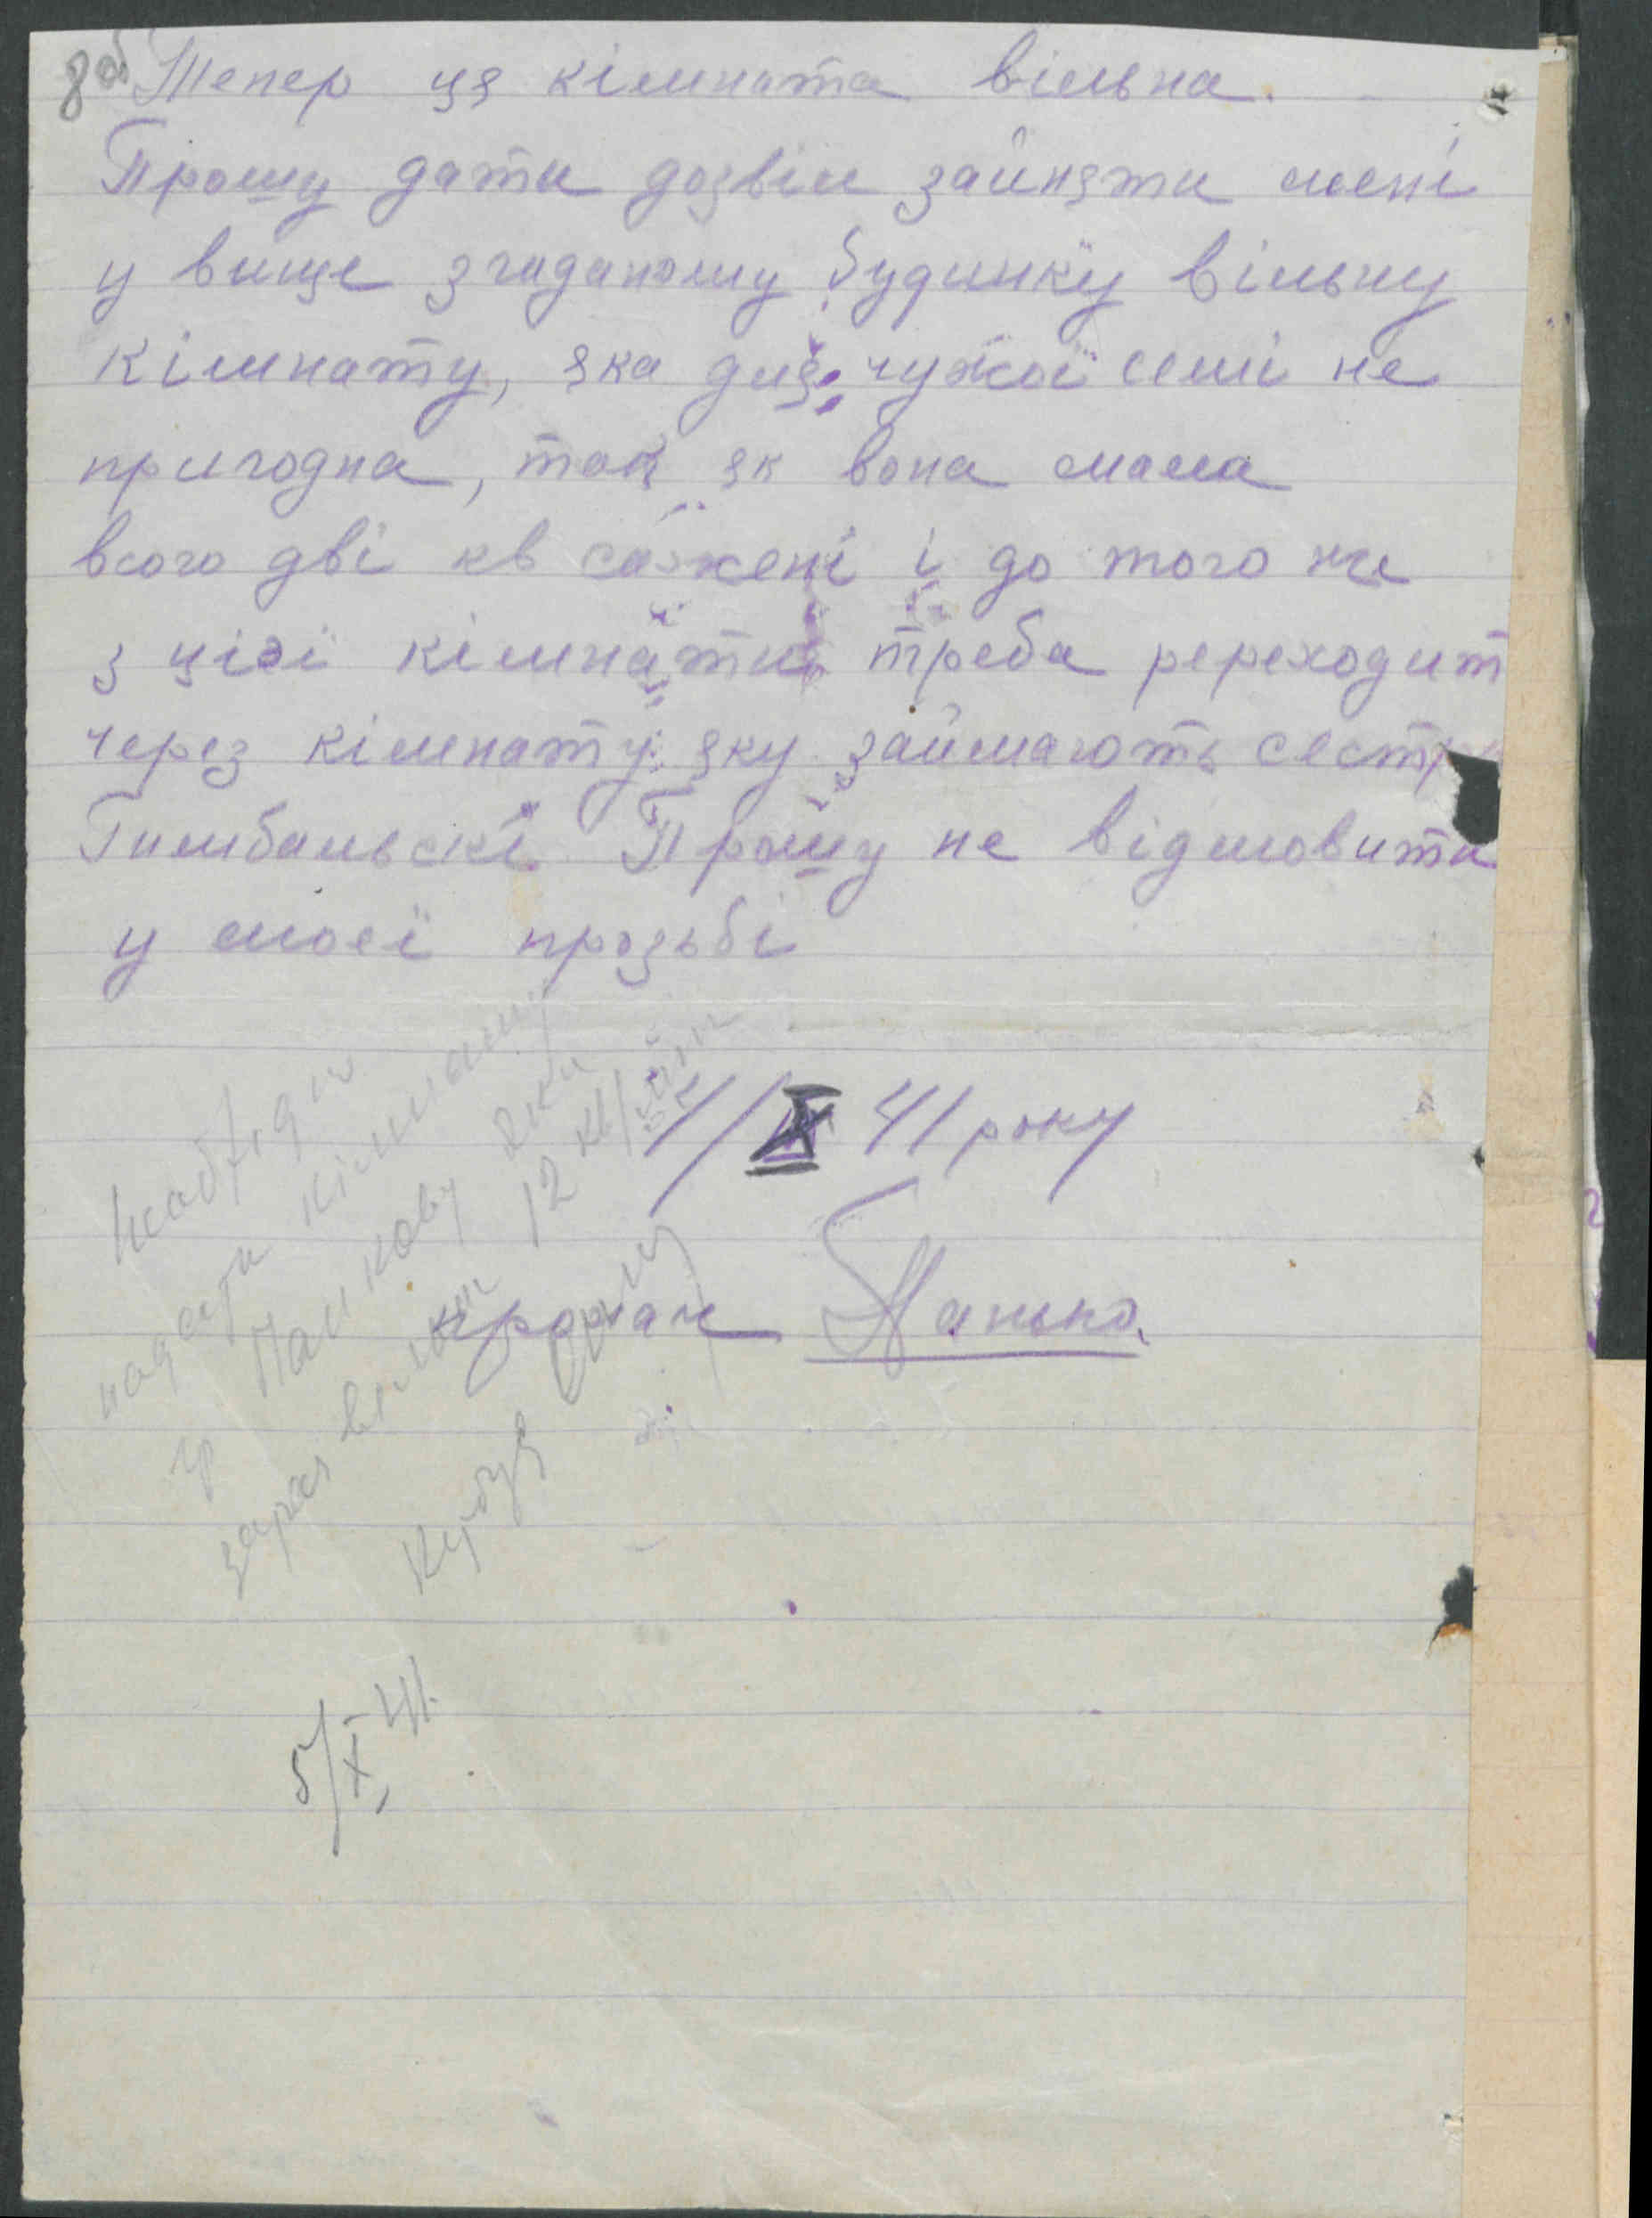 8об
Тепер ця кімната вільна.
Прошу дати дозвіл зайняти мені
у вище згаданому будинку вільну
кімнату, яка для чужої семі не
пригодна, так як вона мала
всого дві кв сажені і до того же
з цієї кімнати треба переходит
через кімнату яку займають сестр
Гимбальскі Прошу не відмовити
у моєї прозьбі
4/X 41 року
прохач Панько.
надати кімнату
гр Панкову яка
зараз вільн 12 кв/
5/X 41.